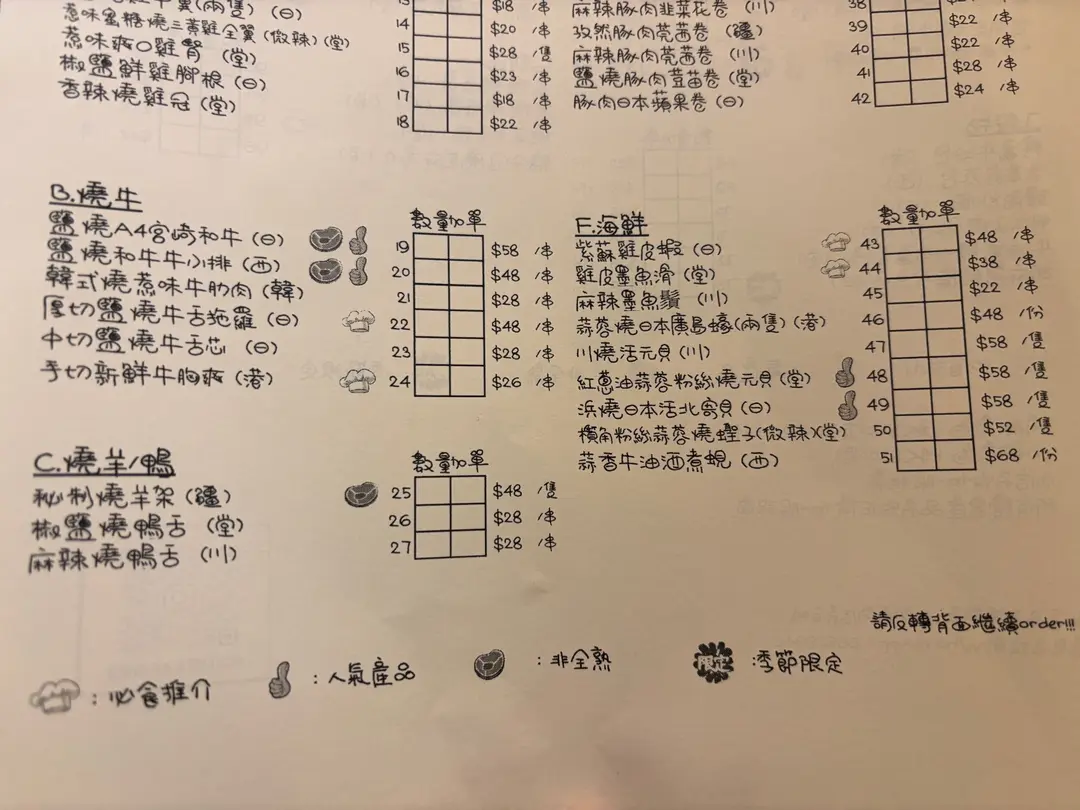 (兩隻) (日) 14 $20 /串
惹味蜜糖燒三黃雞全翼 (微辣) (堂) 15 $28 /隻
惹味爽口雞腎 (堂) 16 $23 /串
椒鹽鮮雞腳根 (日) 17 $18 /串
香辣燒雞冠 (堂) 18 $22 /串
B.燒牛
數量加單
鹽燒A4宮崎和牛 (日) 19 $58 /串
鹽燒和牛牛小排 (西) 20 $48 /串
韓式燒惹味牛肋肉 (韓) 21 $28 /串
厚切鹽燒牛舌拖羅 (日) 22 $48 /串
中切鹽燒牛舌芯 (日) 23 $28 /串
手切新鮮牛胸爽 (港) 24 $26 /串
C.燒羊/鴨
數量加單
秘制燒羊架 (疆) 25 $48 /隻
椒鹽燒鴨舌 (堂) 26 $28 /串
麻辣燒鴨舌 (川) 27 $28 /串
麻辣豚肉韭菜花卷 (川) 38
孜然豚肉芫茜卷 (疆) 39 $22 /串
麻辣豚肉芫茜卷 (川) 40 $22 /串
鹽燒豚肉荳苗卷 (堂) 41 $28 /串
豚肉日本蘋果卷 (日) 42 $24 /串
F.海鮮
數量加單
紫蘇雞皮蝦 (日) 43 $48 /串
雞皮墨魚滑 (堂) 44 $38 /串
麻辣墨魚鬚 (川) 45 $22 /串
蒜蓉燒日本廣島蠔(兩隻) (港) 46 $48 /份
川燒活元貝 (川) 47 $58 /隻
紅蔥油蒜蓉粉絲燒元貝 (堂) 48 $58 /隻
浜燒日本活北寄貝 (日) 49 $58 /隻
欖角粉絲蒜蓉燒蟶子(微辣)(堂) 50 $52 /隻
蒜香牛油酒煮蜆 (西) 51 $68 /份
請反轉背面繼續order!!!
：必食推介
：人氣產品
：非全熟
限定 季節限定